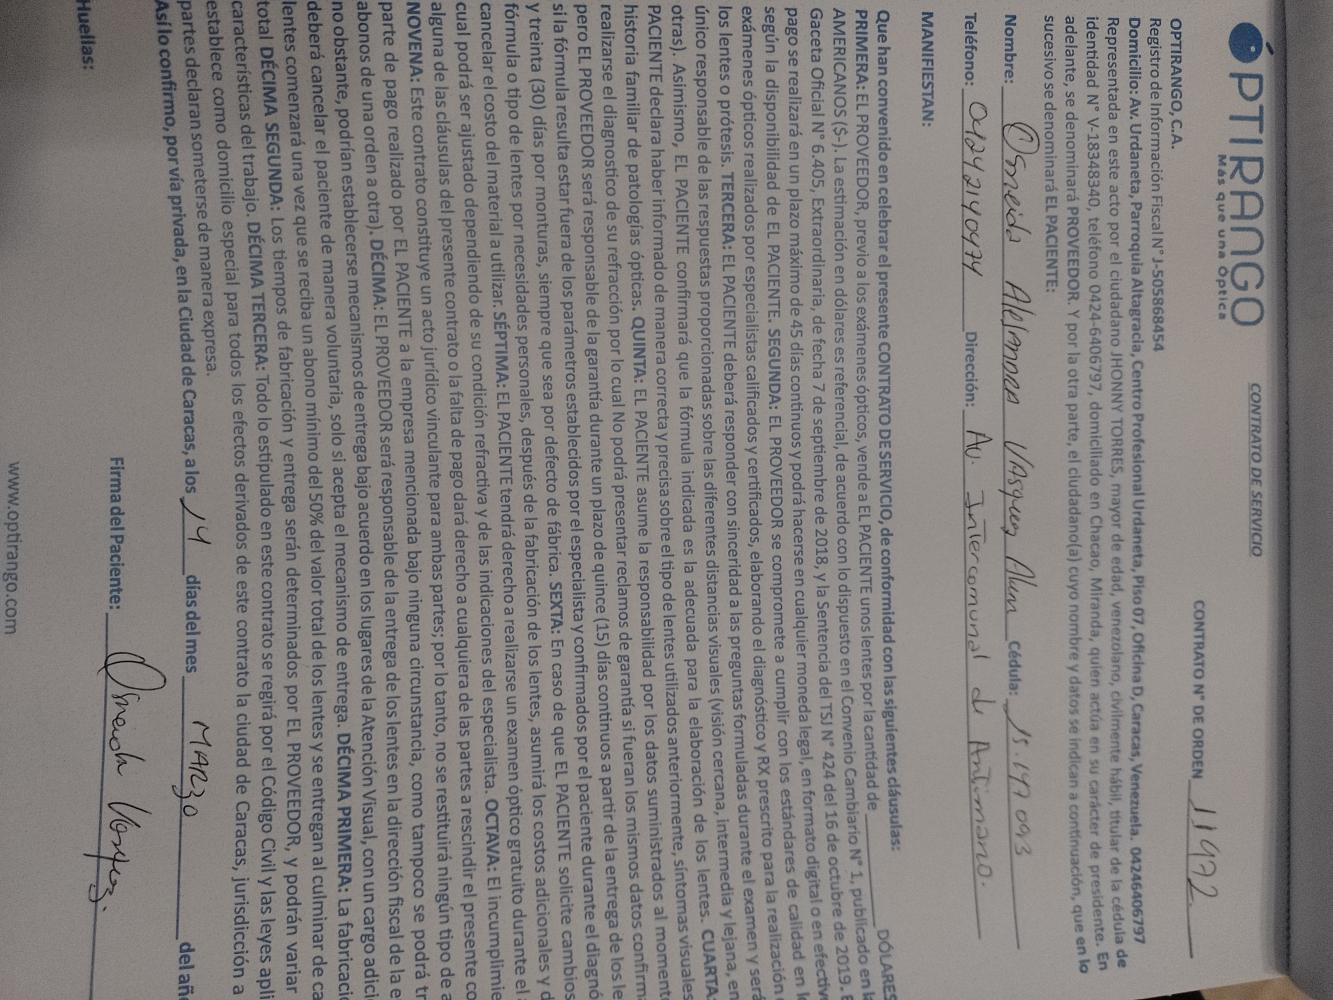 OPTIRANGO
Más que una Óptica
CONTRATO DE SERVICIO
CONTRATO N° DE ORDEN 11972
OPTIRANGO, C.A.
Registro de Información Fiscal N° J-505868454
Domicilio: Av. Urdaneta, Parroquia Altagracia, Centro Profesional Urdaneta, Piso 07, Oficina D, Caracas, Venezuela. 04246406797
Representada en este acto por el ciudadano JHONNY TORRES, mayor de edad, venezolano, civilmente hábil, titular de la cédula de
identidad N° V-18348340, teléfono 0424-6406797, domiciliado en Chacao, Miranda, quien actúa en su carácter de presidente. En
adelante, se denominará PROVEEDOR. Y por la otra parte, el ciudadano(a) cuyo nombre y datos se indican a continuación, que en lo
sucesivo se denominará EL PACIENTE:
Nombre: Osneida Alejandra Vasquez Cédula: 15.147.093
Teléfono: 04242140974 Dirección: Av. Intercomunal de Antimano.
MANIFIESTAN:
Que han convenido en celebrar el presente CONTRATO DE SERVICIO, de conformidad con las siguientes cláusulas:
PRIMERA: EL PROVEEDOR, previo a los exámenes ópticos, vende a EL PACIENTE unos lentes por la cantidad de DÓLARES
AMERICANOS ($-). La estimación en dólares es referencial, de acuerdo con lo dispuesto en el Convenio Cambiario N° 1, publicado en la
Gaceta Oficial N° 6.405, Extraordinaria, de fecha 7 de septiembre de 2018, y la Sentencia del TSJ N° 424 del 16 de octubre de 2019. E
pago se realizará en un plazo máximo de 45 días continuos y podrá hacerse en cualquier moneda legal, en formato digital o en efectivo
según la disponibilidad de EL PACIENTE. SEGUNDA: EL PROVEEDOR se compromete a cumplir con los estándares de calidad en l
exámenes ópticos realizados por especialistas calificados y certificados, elaborando el diagnóstico y RX prescrito para la realización
los lentes o prótesis. TERCERA: EL PACIENTE deberá responder con sinceridad a las preguntas formuladas durante el examen y será
único responsable de las respuestas proporcionadas sobre las diferentes distancias visuales (visión cercana, intermedia y lejana, en
otras). Asimismo, EL PACIENTE confirmará que la fórmula indicada es la adecuada para la elaboración de los lentes. CUARTA:
PACIENTE declara haber informado de manera correcta y precisa sobre el tipo de lentes utilizados anteriormente, síntomas visuales
historia familiar de patologías ópticas. QUINTA: EL PACIENTE asume la responsabilidad por los datos suministrados al moment
realizarse el diagnostico de su refracción por lo cual No podrá presentar reclamos de garantía si fueran los mismos datos confirm
pero EL PROVEEDOR será responsable de la garantía durante un plazo de quince (15) días continuos a partir de la entrega de los le
si la fórmula resulta estar fuera de los parámetros establecidos por el especialista y confirmados por el paciente durante el diagnó
y treinta (30) días por monturas, siempre que sea por defecto de fábrica. SEXTA: En caso de que EL PACIENTE solicite cambios
fórmula o tipo de lentes por necesidades personales, después de la fabricación de los lentes, asumirá los costos adicionales y d
cancelar el costo del material a utilizar. SÉPTIMA: EL PACIENTE tendrá derecho a realizarse un examen óptico gratuito durante el
cual podrá ser ajustado dependiendo de su condición refractiva y de las indicaciones del especialista. OCTAVA: El incumplimie
alguna de las cláusulas del presente contrato o la falta de pago dará derecho a cualquiera de las partes a rescindir el presente co
NOVENA: Este contrato constituye un acto jurídico vinculante para ambas partes; por lo tanto, no se restituirá ningún tipo de a
parte de pago realizado por EL PACIENTE a la empresa mencionada bajo ninguna circunstancia, como tampoco se podrá tr
abonos de una orden a otra). DÉCIMA: EL PROVEEDOR será responsable de la entrega de los lentes en la dirección fiscal de la e
no obstante, podrían establecerse mecanismos de entrega bajo acuerdo en los lugares de la Atención Visual, con un cargo adici
deberá cancelar el paciente de manera voluntaria, solo si acepta el mecanismo de entrega. DÉCIMA PRIMERA: La fabricaci
lentes comenzará una vez que se reciba un abono mínimo del 50% del valor total de los lentes y se entregan al culminar de ca
total DÉCIMA SEGUNDA: Los tiempos de fabricación y entrega serán determinados por EL PROVEEDOR, y podrán variar
características del trabajo. DÉCIMA TERCERA: Todo lo estipulado en este contrato se regirá por el Código Civil y las leyes apli
establece como domicilio especial para todos los efectos derivados de este contrato la ciudad de Caracas, jurisdicción a
partes declaran someterse de manera expresa.
Así lo confirmo, por vía privada, en la Ciudad de Caracas, a los 14 días del mes MARZO del año
Huellas:
Firma del Paciente: Osneida Vasquez.
www.optirango.com